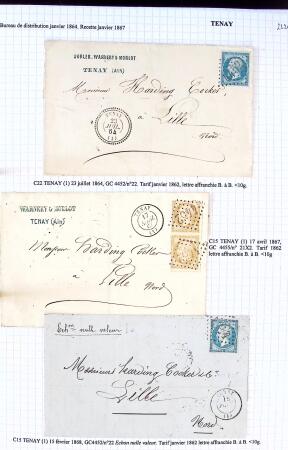 Bureau de distribution janvier 1864. Recette janvier 1867
TENAY
WARNERY & MORLOT
TENAY (AIN)
Monsieur Harding Cocker
à Lille
Nord
TENAY
23
JUIL.
64
(1)
C22 TENAY (1) 23 juillet 1864, GC 4452/n°22. Tarif janvier 1862, lettre affranchie B. à B. <10g.
WARNERY & MORLOT
TENAY (Ain)
TENAY
17
Monsieur Harding Cocker
à Lille
Nord
C15 TENAY (1) 17 avril 1867,
GC 4455/n° 21X2. Tarif 1862
lettre affranchie B. à B. <10g
Echon nulle valeur
Messieurs Harding Cocker & Co
Lille
Nord
15
C15 TENAY (1) 15 février 1868, GC4452/n°22 Echon nulle valeur. Tarif janvier 1862 lettre affranchie B. à B. <10g.